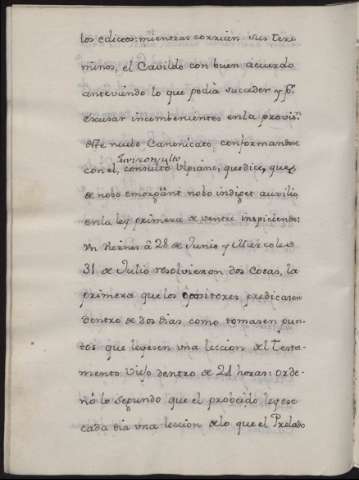 los edictos: mientras corrian sus ter-
minos, el Cavildo con buen acuerdo
anteviendo lo que podia suceder y pa.
excusar incombenientes en la provisn.
deste nuebo Canonicato conformandose
con el, Jurisconsulto Ulpiano, que dice, que
de nobo emorgant nobo indiget auxilio
en la ley primera de ventre inspiciendo:
Vn Viernes á 28 de Junio y Miércoles
31 de Julio resolvieron dos Cosas, la
primera que los Opositores predicasen
dentro de dos dias como tomasen pun-
tos que leyesen vna leccion del Testa-
mento Viejo dentro de 24 horas: orde-
nó lo segundo que el probeido leyese
cada dia vna leccion de lo que el Prelado